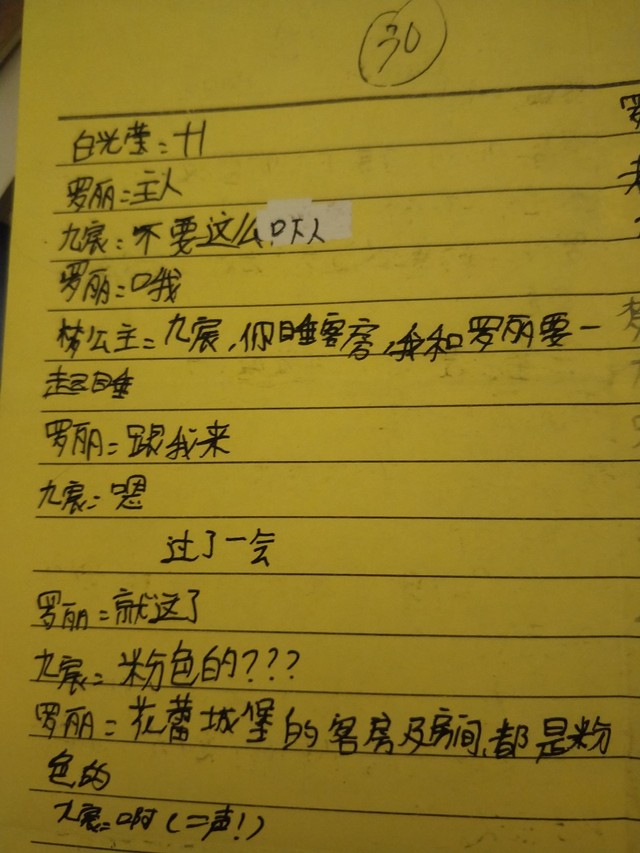 30
白光莹:廿
罗丽:主人
九宸:不要这么吓人
罗丽:哦
梦公主:九宸,你睡客房,我和罗丽要一
起睡
罗丽:跟我来
九宸:嗯
过了一会
罗丽:就这了
九宸:粉色的???
罗丽:花蕾城堡的客房及房间,都是粉
色的
九宸:啊(二声!)